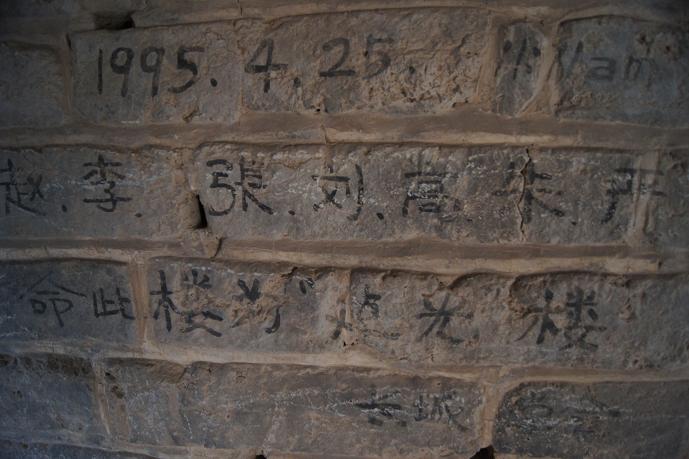 1995.4.25.
赵.李.張.刘.高.朱.严
命此楼为" 光楼
长城